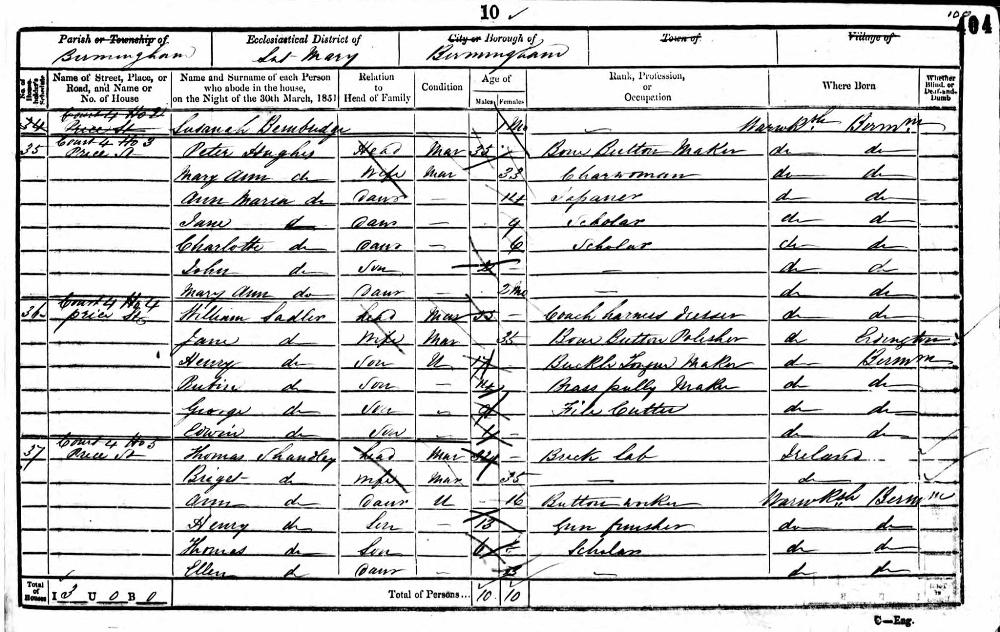 10 ✓
404
Parish or Township of Ecclesiastical District of City or Borough of Town of Village of
Birmingham St Mary Birmingham
No. of Householder's Schedule Name of Street, Place, or Road, and Name or No. of House Name and Surname of each Person who abode in the house, on the Night of the 30th March, 1851 Relation to Head of Family Condition Age of Males Females Rank, Profession, or Occupation Where Born Whether Blind, or Deaf-and-Dumb
34 Court 4 No 2 Price St Susanah Bembudge — Warwksh Birmm
35 Court 4 No 3 Price St Peter Hughes Head Mar 35 Bone Button Maker do do
Mary Ann do Wife Mar 33 Charwoman do do
Ann Maria do Daur — 14 Japaner do do
Jane do Daur — 9 Scholar do do
Charlotte do Daur — 6 Scholar do do
John do Son — do do
Mary Ann do Daur — 2 Mo — do do
36 Court 4 No 4 price St William Sadler Head Mar 35 Coach harness dresser do do
Jane do Wife Mar 35 Bone Button Polisher do Erdington
Henry do Son U 17 Buckle Tongue Maker do Birmm
do Son — 14 Brass pully Maker do do
George do Son — 9 File Cutter do do
Edwin do Son — 4 — do do
37 Court 4 No 5 Price St Thomas Shandley Head Mar Brick lab Ireland
Briget do Wife Mar 35 — do
Ann do Daur U 16 Button worker Warwksh Birmm
Henry do Son — 13 Gun finisher do do
Thomas do Son 6 Scholar do do
Ellen do Daur — 3 — do do
Total of Houses I 3 U 0 B 0 Total of Persons... 10 10
C—Eng.